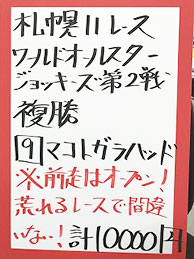 札幌11レース
ワールドオールスター
ジョッキーズ第2戦
複勝
9マコトガラハッド
※前走はオープン!
荒れるレースで間違
いない!計10000円